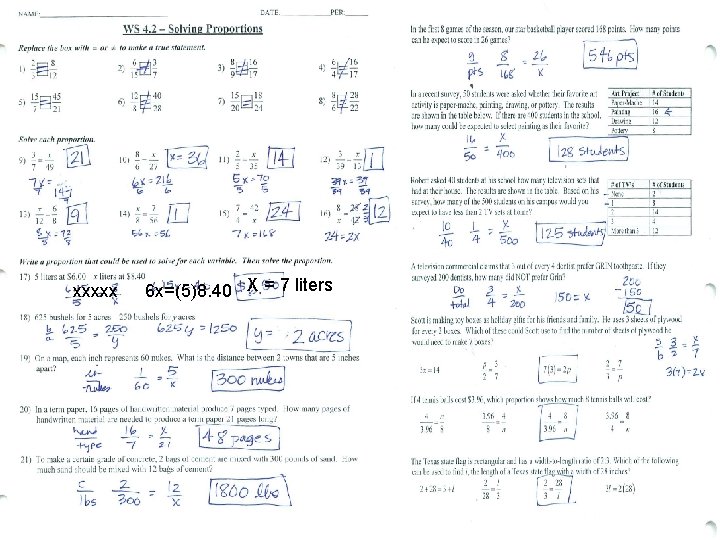 NAME: DATE: PER:
WS 4.2 – Solving Proportions
Replace the box with = or ≠ to make a true statement.
1) 2/3 = 8/12 2) 6/15 3/7 3) 8/9 16/17 4) 6/4 16/17
5) 15/7 45/21 6) 12/8 40/28 7) 15/20 18/24 8) 8/6 28/22
Solve each proportion.
9) 3/7 = x/49 21 10) 8/6 - x/27 x = 36 11) 2/5 x/35 14 12) 3/39 x/13 1
7x = 147 6x = 216 5x = 70 39x = 39
13) x/12 6/8 9 14) x/8 7/56 1 15) 7/4 42/x 24 16) 8/x 2
8x = 72 56x = 56 7x = 168 24 = 2x
Write a proportion that could be used to solve for each variable. Then solve the proportion.
17) 5 liters at $6.00 x liters at $8.40
xxxxx 6x=(5)8.40 X = 7 liters
18) 625 bushels for 5 acres 250 bushels for y acres
b/a 625/5 = 250/y 625y = 1250 y = 2 acres
19) On a map, each inch represents 60 nukes. What is the distance between 2 towns that are 5 inches
apart?
in/nukes 1/60 = 5/x 300 nukes
20) In a term paper, 16 pages of handwritten material produce 7 pages typed. How many pages of
handwritten material are needed to produce a term paper 21 pages long?
hand/type 16/7 = x/21 48 pages
21) To make a certain grade of concrete, 2 bags of cement are mixed with 300 pounds of sand. How
much sand should be mixed with 12 bags of cement?
c/lbs 2/300 = 12/x 1800 lbs
In the first 8 games of the season, our star basketball player scored 168 points. How many points
can be expect to score in 26 games?
g/pts 8/168 = 26/x 546 pts
In a recent survey, 50 students were asked whether their favorite art
activity is paper-mache, painting, drawing, or pottery. The results
are shown in the table below. If there are 400 students in the school,
how many could be expected to select painting as their favorite?
16/50 = x/400 128 students
Art Project # of Students
Paper-Mache 14
Painting 16
Drawing 12
Pottery 8
Robert asked 40 students at his school how many television sets that
had at their house. The results are shown in the table. Based on his
survey, how many of the 500 students on his campus would you
expect to have less than 2 TV sets at home?
10/40 1/4 = x/500 125 students
# of TV's # of Students
None 2
1 8
2 14
3 12
More than 3
A television commercial claims that 3 out of every 4 dentist prefer GRIN toothpaste. If they
surveyed 200 dentists, how many did not prefer Grin?
Do/total 3/4 = x/200 150 = x 200 - 150 150
Scott is making toy boxes as holiday gifts for his friends and family. He uses 3 sheets of plywood
for every 2 boxes. Which of these could Scott use to find the number of sheets of plywood he
would need to make 7 boxes?
s/b 3/2 = x/7
3(7) = 2x
3x = 14 p/2 = 3/7 7(3) = 2p 2/3 = 7/p
If 4 tennis balls cost $3.96, which proportion shows how much 8 tennis balls will cost?
4/3.96 = n/8 3.96/8 = 4/n 4/3.96 = 8/n 3.96/4 = 8/n
The Texas state flag is rectangular and has a width-to-length ratio of 2:3. Which of the following
can be used to find l, the length of a Texas state flag with a width of 28 inches?
2 + 28 = 3 + l 2/28 = l/3 2/3 = 28/l 3l = 2(28)